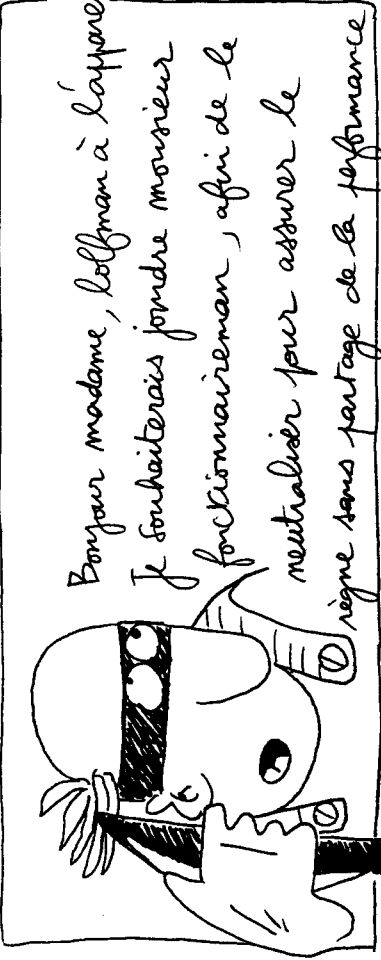 Bonjour madame, lolfman à l'appare
Je souhaiterais joindre monsieur
fonctionnaireman, afin de le
neutraliser pour assurer le
règne sans partage de la performance